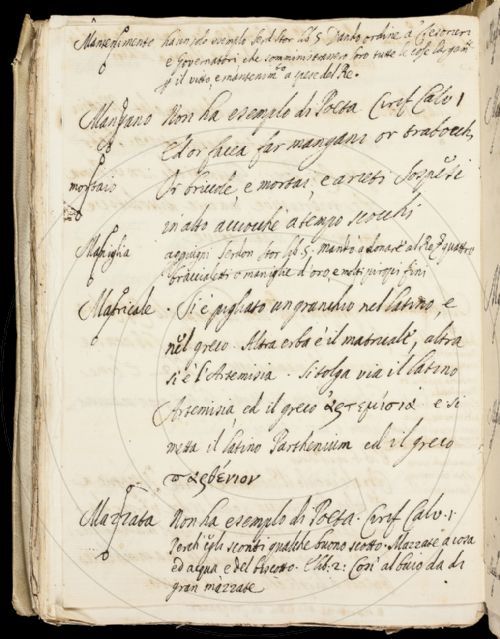 Mantenimento ha un solo esempio Serd. Stor. lib. 5 Dando ordine a' Tesorieri
e Governatori, che somministrassero loro tutte le cose
p il vitto, e mantenim.to a spese del Re.
Mangano Non ha esempio di Poeta Ciref. Calv. 1
E d'or facea far mangani or trabocchi
mortaio Or briccole, e mortai, e arieti sospesi
in alto acciocchè a tempo scocchi
Maniglia aggiugni Serdon. Stor. lib. 5. Mandò a donare al Re quattro
braccialetti o maniglie d'oro, e molti fini
Matricale. Si è pigliato un granchio nel latino, e
nel greco. Altra erba è il matricale, altra
si è l'Artemisia. Si tolga via il latino
Artemisia, ed il greco ἀρτεμισία e si
metta il latino Parthenium ed il greco
παρθένιον
Mazzata Non ha esempio di Poeta. Ciref. Calv. 1.
Perch' egli sconti qualche buono scotto. Mazzate a iosa
ed acqua e del biscotto. E lib. 2: Così al buio da di
gran mazzate